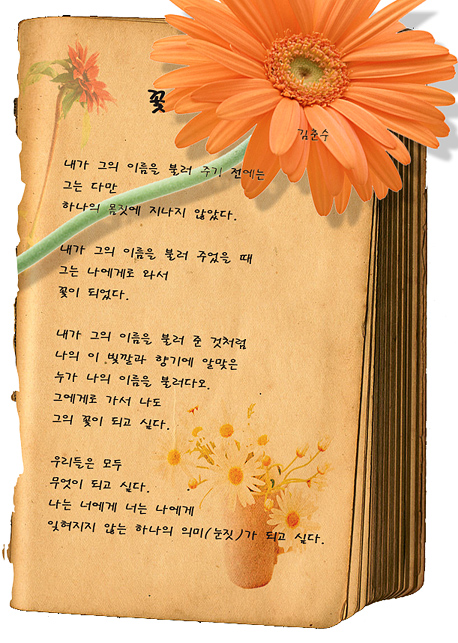 꽃
김춘수
내가 그의 이름을 불러 주기 전에는
그는 다만
하나의 몸짓에 지나지 않았다.
내가 그의 이름을 불러 주었을 때
그는 나에게로 와서
꽃이 되었다.
내가 그의 이름을 불러 준 것처럼
나의 이 빛깔과 향기에 알맞은
누가 나의 이름을 불러다오.
그에게로 가서 나도
그의 꽃이 되고 싶다.
우리들은 모두
무엇이 되고 싶다.
나는 너에게 너는 나에게
잊혀지지 않는 하나의 의미(눈짓)가 되고 싶다.